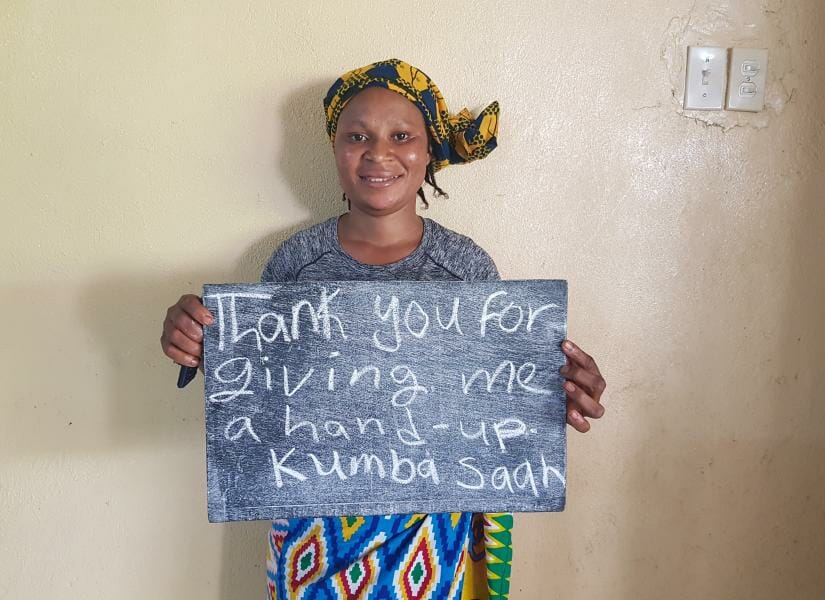 Thank you for
giving me
a hand-up.
Kumba Saah